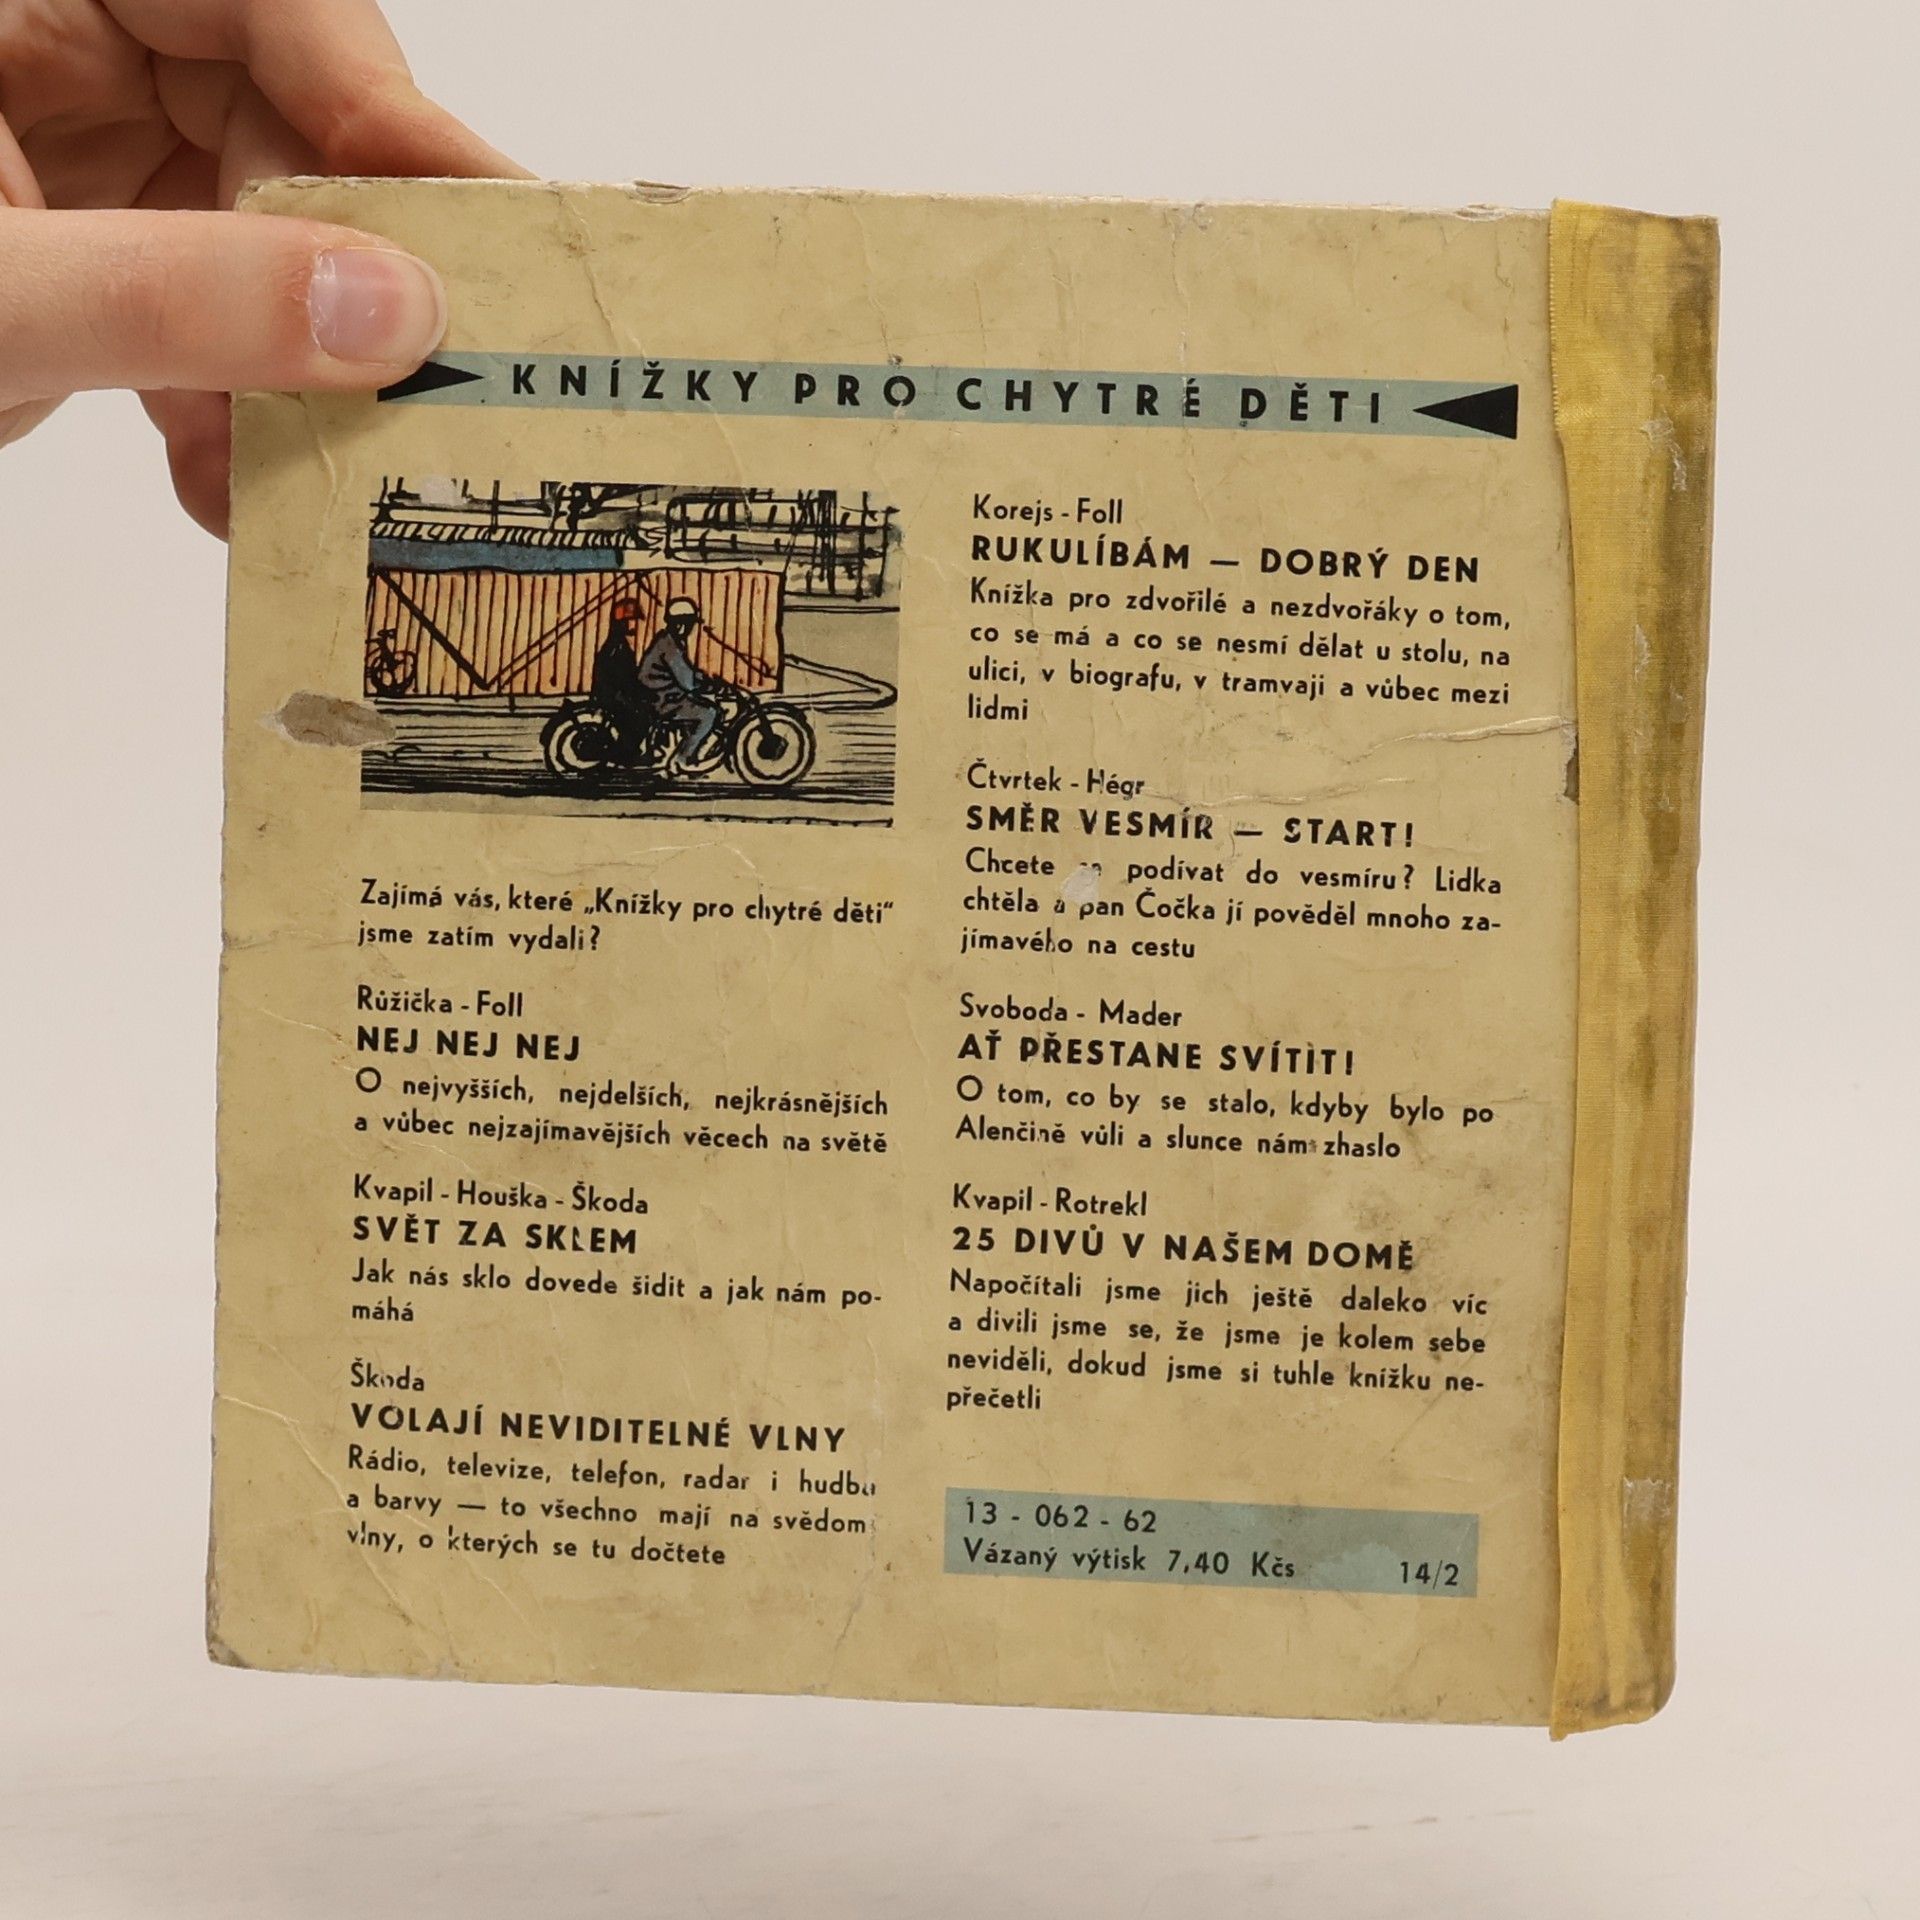 KNÍŽKY PRO CHYTRÉ DĚTI
Zajímá vás, které „Knížky pro chytré děti“
jsme zatím vydali?
Růžička - Foll
NEJ NEJ NEJ
O nejvyšších, nejdelších, nejkrásnějších
a vůbec nejzajímavějších věcech na světě
Kvapil - Houška - Škoda
SVĚT ZA SKLEM
Jak nás sklo dovede šidit a jak nám po-
máhá
Škoda
VOLAJÍ NEVIDITELNÉ VLNY
Rádio, televize, telefon, radar i hudba
a barvy — to všechno mají na svědomí
vlny, o kterých se tu dočtete
Korejs - Foll
RUKULÍBÁM — DOBRÝ DEN
Knížka pro zdvořilé a nezdvořáky o tom,
co se má a co se nesmí dělat u stolu, na
ulici, v biografu, v tramvaji a vůbec mezi
lidmi
Čtvrtek - Hégr
SMĚR VESMÍR — START!
Chcete podívat do vesmíru? Lidka
chtěla a pan Čočka jí pověděl mnoho za-
jímavého na cestu
Svoboda - Mader
AŤ PŘESTANE SVÍTIT!
O tom, co by se stalo, kdyby bylo po
Alenčině vůli a slunce nám zhaslo
Kvapil - Rotrekl
25 DIVŮ V NAŠEM DOMĚ
Napočítali jsme jich ještě daleko víc
a divili jsme se, že jsme je kolem sebe
neviděli, dokud jsme si tuhle knížku ne-
přečetli
13 - 062 - 62
Vázaný výtisk 7,40 Kčs 14/2